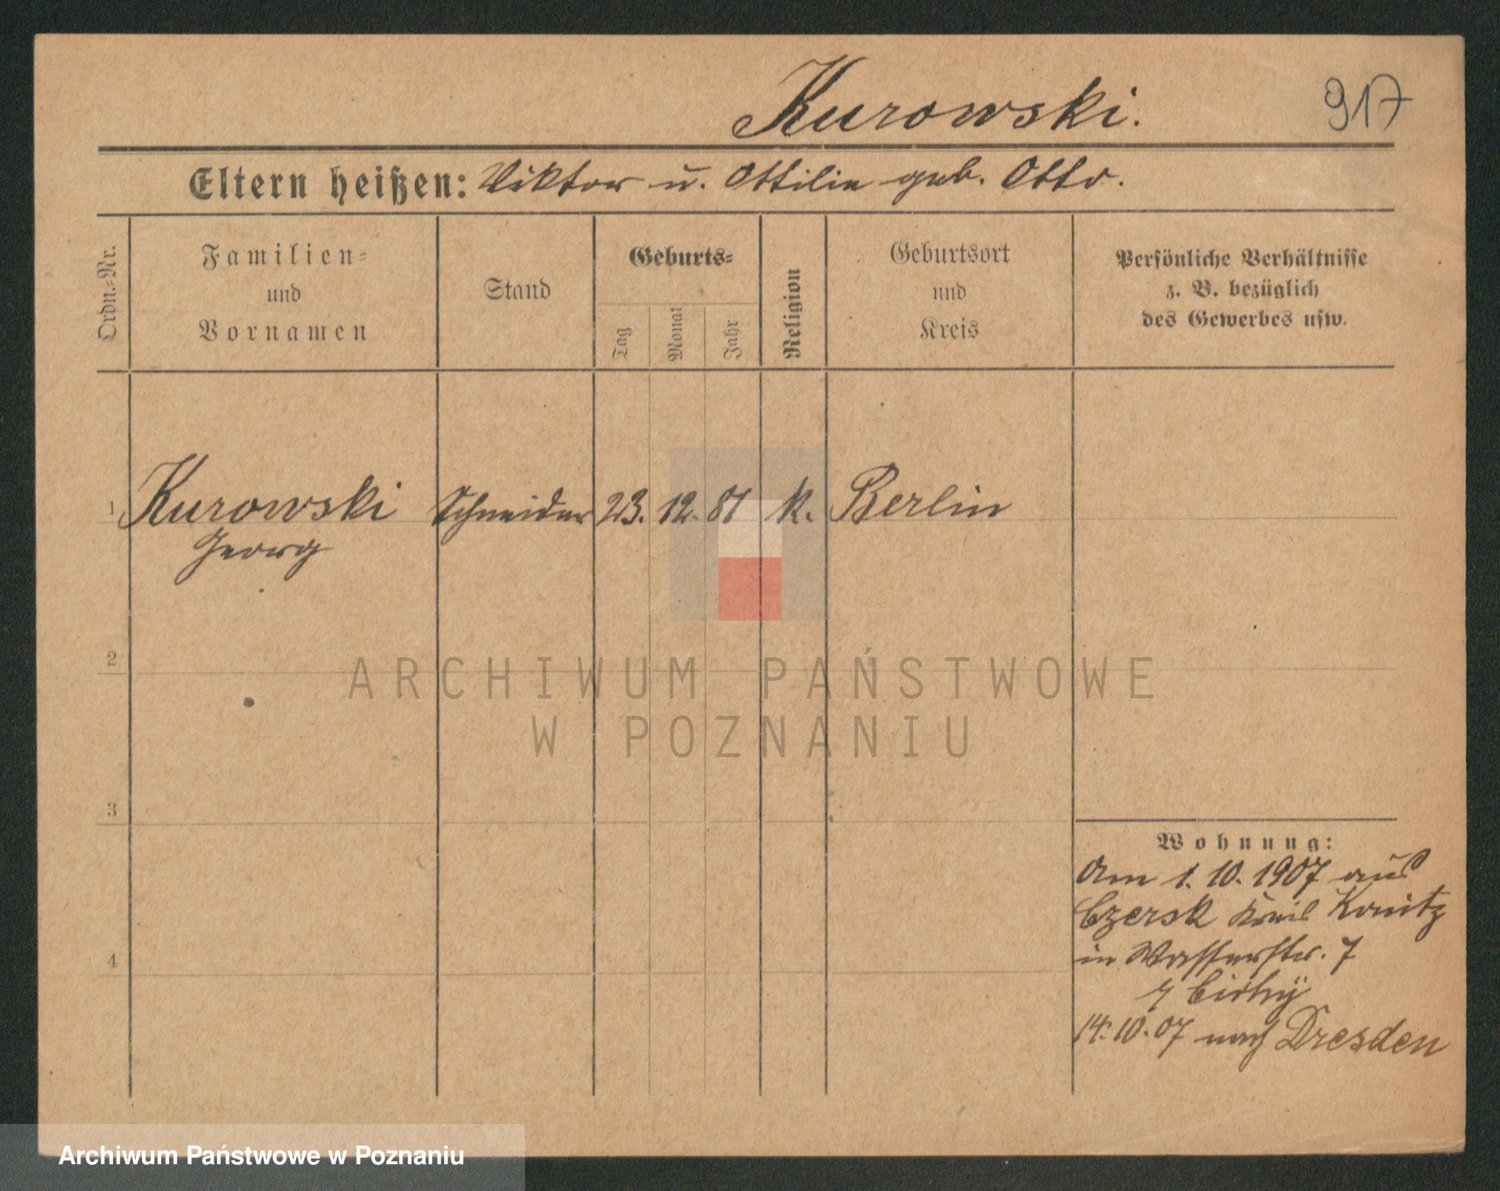 Kurowski.
917
Eltern heißen: Viktor u. Ottilie geb. Otto.
Ordn.-Nr.
Familien-
und
Vornamen
Stand
Geburts-
Tag
Monat
Jahr
Religion
Geburtsort
und
Kreis
Persönliche Verhältnisse
z. B. bezüglich
des Gewerbes usw.
1 Kurowski Schneider 23. 12. 81 k. Berlin
Georg
2
3
4
Wohnung:
Am 1. 10. 1907 aus
Czersk Kreis Konitz
in Wasserstr. 7
14. 10. 07 nach Dresden
ARCHIWUM PAŃSTWOWE
W POZNANIU
Archiwum Państwowe w Poznaniu